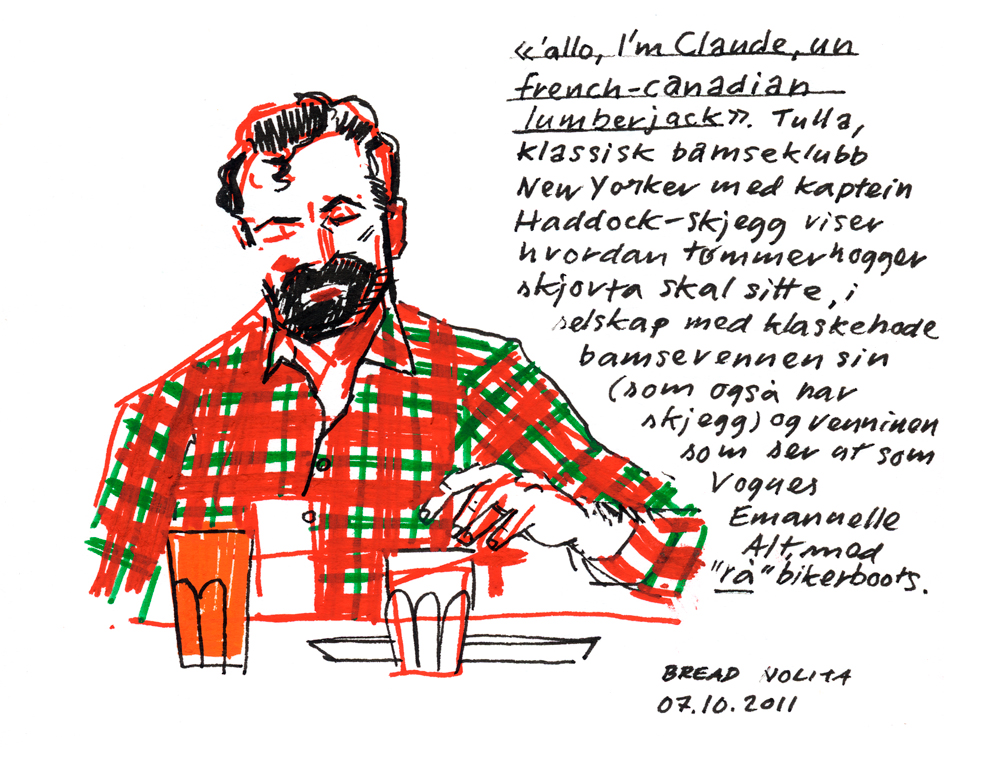 «'allo, I'm Claude, un
french-canadian
lumberjack». Tulla,
klassisk bamseklubb
New Yorker med kaptein
Haddock-skjegg viser
hvordan tømmerhogger
skjorta skal sitte, i
selskap med klaskehode
bamsevennen sin
(som også har
skjegg) og venninen
som ser ut som
Vogues
Emanuelle
Alt, med
"rå" bikerboots.
BREAD NOLITA
07.10.2011